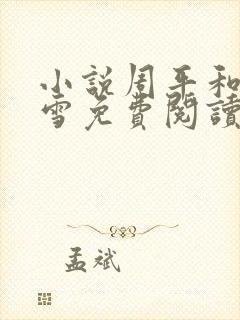 小說周平和
雪免費閱讀
孟斌